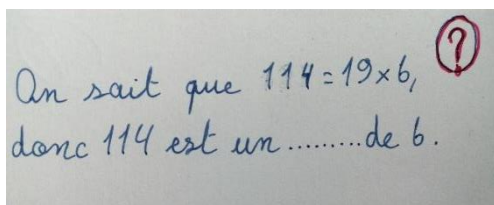 ?
On sait que 114 = 19 × 6,
donc 114 est un ......... de 6.